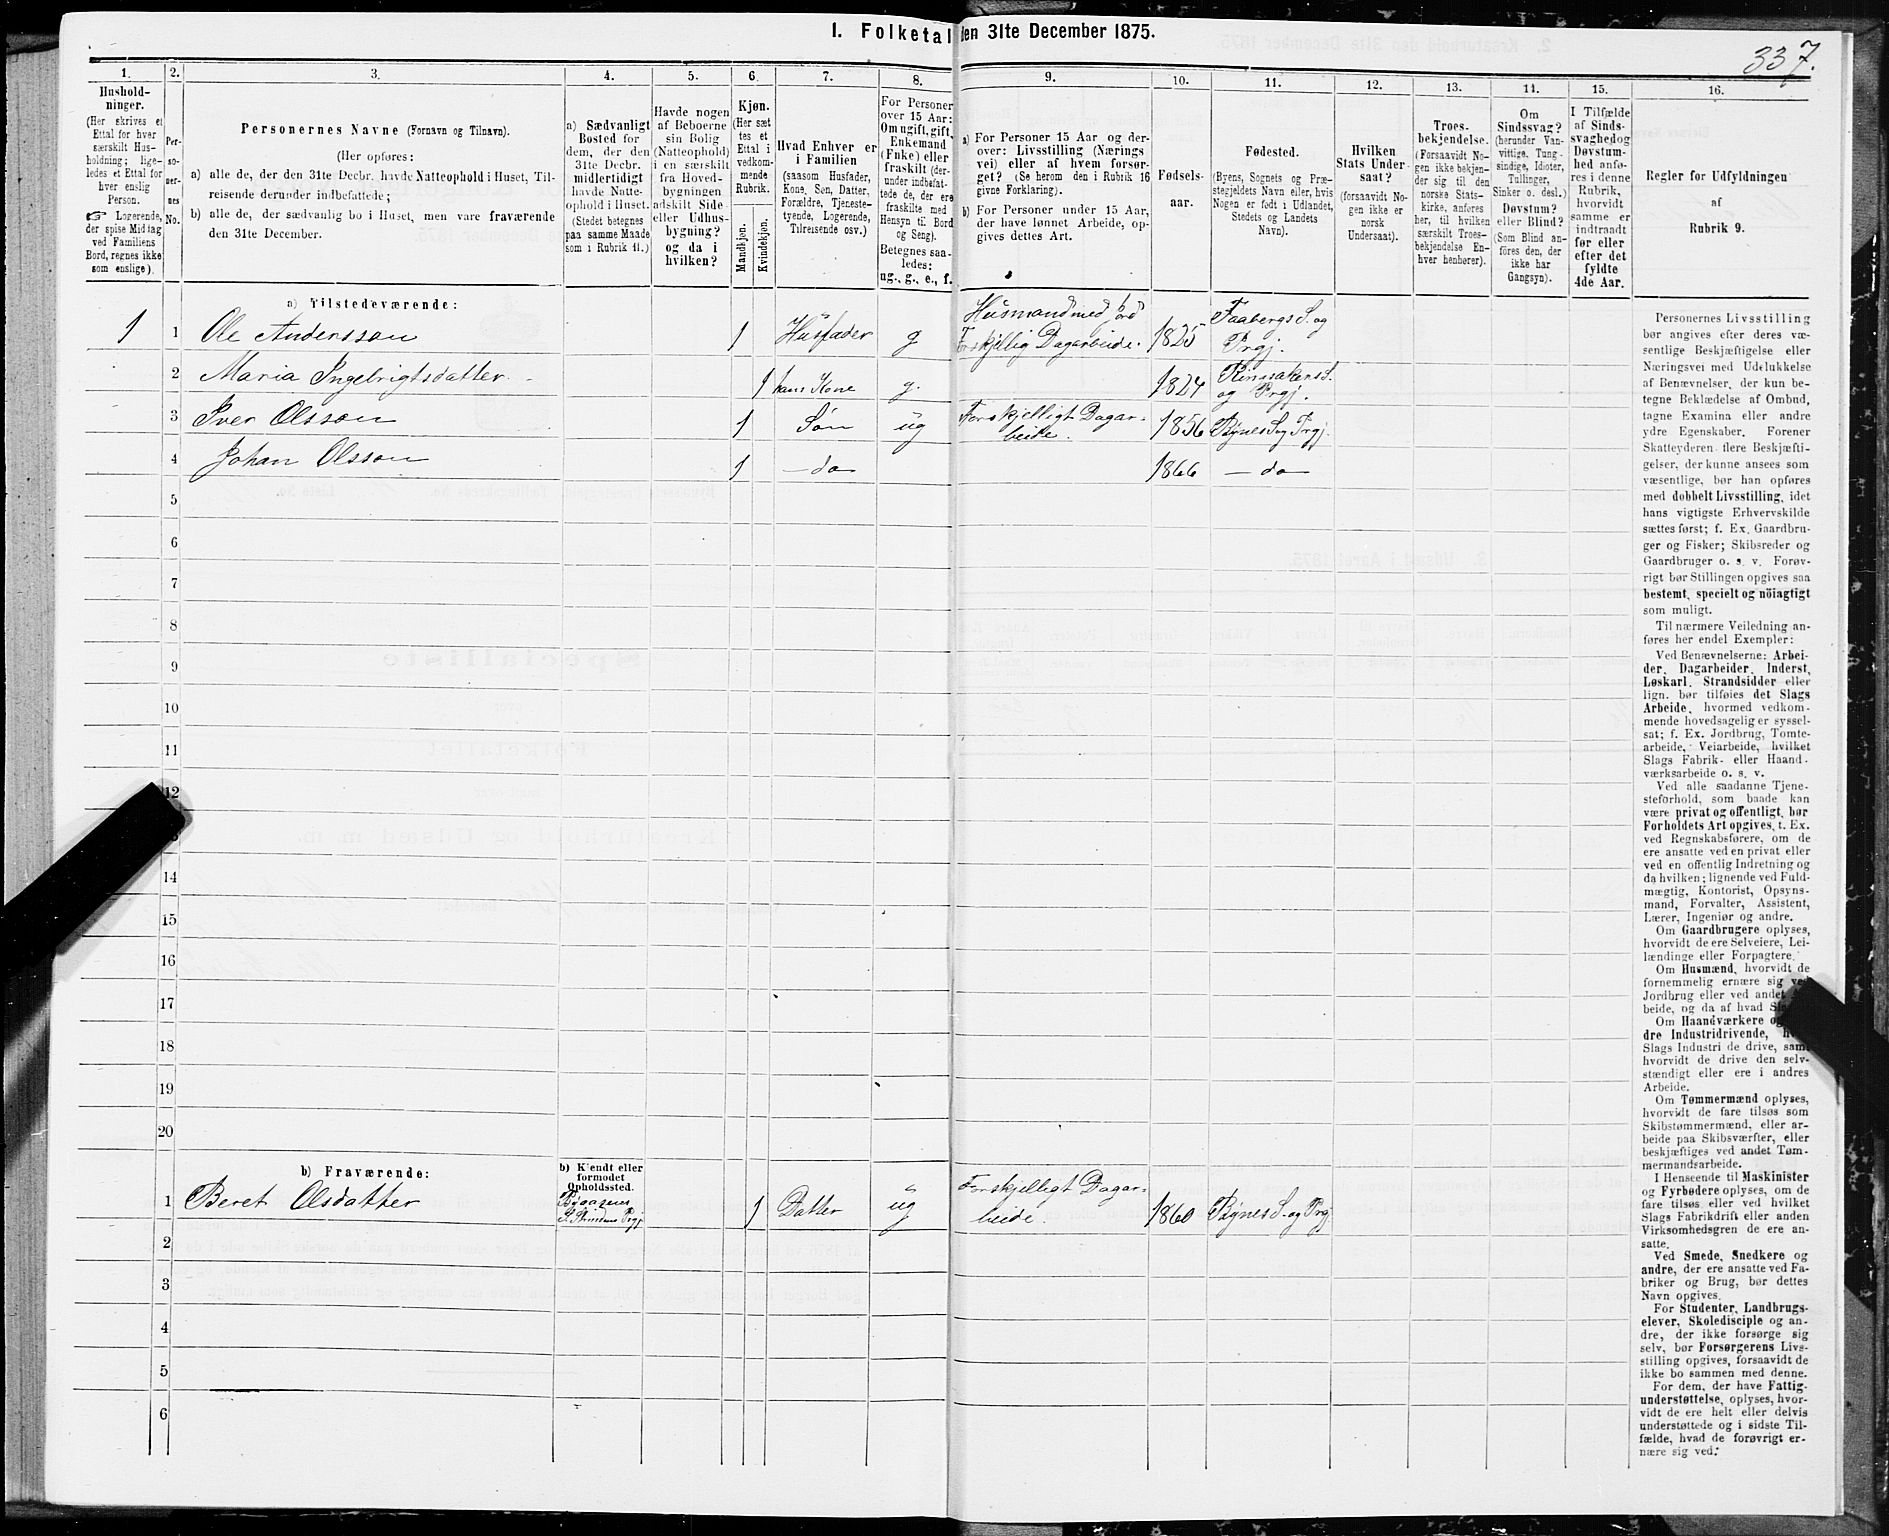 1. Folketal den 31te December 1875.
337.
1.
Hushold-
ninger.
(Her skrives et
Ettal for hver
særskilt Hus-
holdning; lige-
ledes et Ettal for
hver enslig
Person.
☞ Logerende,
der spise Middag
ved Familiens
Bord, regnes ikke
som enslige).
2.
Per-
so-
ner-
nes
No.
3.
Personernes Navne (Fornavn og Tilnavn).
(Her opføres:
a) alle de, der den 31te Decbr. havde Natteophold i Huset, Til-
reisende derunder indbefattede;
b) alle de, der sædvanlig bo i Huset, men vare fraværende
den 31te December.
4.
a) Sædvanligt
Bosted for
dem, der den
31te Decbr.
midlertidigt
havde Natte-
ophold i Huset.
(Stedet betegnes
paa samme Maade
som i Rubrik 11.)
5.
Havde nogen
af Beboerne
sin Bolig
(Natteophold)
i en særskilt
fra Hoved-
bygningen
adskilt Side-
eller Udhus-
bygning?
og da i
hvilken?
6.
Kjøn.
(Her sæt
tes et
Ettal i
vedkom-
mende
Rubrik.
Mandkjøn.
Kvindekjøn.
7.
Hvad Enhver er
i Familien
(saasom Husfader,
Kone, Søn, Datter,
Forældre, Tjeneste-
tyende, Logerende,
Tilreisende osv.)
8.
For Personer
over 15 Aar:
Om ugift, gift,
Enkemand
(Enke) eller
fraskilt (der-
under indbefat-
tede de, der ere
fraskilte med
Hensyn til Bord
og Seng).
Betegnes saa-
ledes:
ug., g., e., f.
9.
a) For Personer 15 Aar og der-
over: Livsstilling (Nærings
vei) eller af hvem forsør-
get? (Se herom den i Rubrik 16
givne Forklaring).
b) For Personer under 15 Aar,
der have lønnet Arbeide, op-
gives dettes Art.
10.
Fødsels-
aar.
11.
Fødested.
(Byens, Sognets og Præ-
stegjeldets Navn eller, hvis
Nogen er født i Udlandet,
Stedets og Landets
Navn).
12.
Hvilken
Stats Under-
saat?
(forsaavidt No-
gen ikke er
norsk
Undersaat).
13.
Troes-
bekjendelse.
(Forsaavidt No-
gen ikke bekjen-
der sig til den
norske Stats-
kirke, anføres
her, til hvilken
særskilt Troes-
bekjendelse En-
hver henhører).
14.
Om
Sindssvag?
(herunder Van-
vittige, Tung-
sindige, Idioter,
Tullinger,
Sinker o. desl.)
Døvstum?
eller Blind?
(Som Blind an-
føres den, der
ikke har
Gangsyn).
15.
I Tilfælde
af Sinds-
svaghed og
Døvstum-
hed anfø-
res i denne
Rubrik,
hvorvidt
samme er
indtraadt
før eller
efter det
fyldte
4de Aar.
16.
Regler for Udfyldningen
af
Rubrik 9.
a) Tilstedeværende:
1 1 Ole Anderssøn 1 Husfader g Husmand med Jord Forskjellig Dagarbeide. 1825 Faabergs S. og Prgj.
2 Maria Ingebrigtsdatter 1 hans Kone g. 1824 Ringsakers S. og Prgj.
3 Iver Olsson 1 Søn ug Forskjelligt Dagar-beide. 1856 Bynes S og Prgj.
4 Johan Olsson 1 — do 1866 — do
5
6
7
8
9
10
11
12
14
15
16
17
18
19
20
b) Fraværende:
b) Kjendt eller
formodet
Opholdssted.
1 Beret Olsdatter 1 Datter ug Forskjelligt Dagar-beide. 1860 Bynes S. og Prgj
2
3
4
5
6
Personernes Livsstilling
bør angives efter deres væ-
sentlige Beskjæftigelse eller
Næringsvei med Udelukkelse
af Benævnelser, der kun be-
tegne Beklædelse af Ombud,
tagne Examina eller andre
ydre Egenskaber. Forener
Skatteyderen flere Beskjæfti-
gelser, der kunne ansees som
væsentlige, bør han opføres
med dobbelt Livsstilling, idet
hans vigtigste Erhvervskilde
sættes først; f. Ex. Gaardbru-
ger og Fisker; Skibsreder og
Gaardbruger o. s. v. Forøv-
rigt bør Stillingen opgives saa
bestemt, specielt og nöiagtigt
som muligt.
Til nærmere Veiledning an-
føres her endel Exempler:
Ved Benævnelserne: Arbei-
der, Dagarbeider, Inderst,
Løskarl, Strandsidder eller
lign. bør tilføies det Slags
Arbeide, hvormed vedkom-
mende hovedsagelig er syssel-
sat; f. Ex. Jordbrug, Tomte-
arbeide, Veiarbeide, hvilket
Slags Fabrik- eller Haand-
værksarbeide o. s. v.
Ved alle saadanne Tjene-
steforhold, som baade kan
være privat og offentligt, bør
Forholdets Art opgives, t. Ex.
ved Regnskabsførere, om de
ere ansatte ved en privat eller
ved en offentlig Indretning og
da hvilken; lignende ved Fuld-
mægtig, Kontorist, Opsyns-
mand, Forvalter, Assistent,
Lærer, Ingeniør og andre.
Om Gaardbrugere oplyses,
hvorvidt de ere Selveiere, Lei-
lændinge eller Forpagtere.
Om Husmænd, hvorvidt de
fornemmelig ernære sig ved
Jordbrug eller ved andet
beide, og da af hvad
Om Haandværkere
dre Industridrivende,
Slags Industri de drive, samt
hvorvidt de drive den selv-
stændigt eller ere i andres
Arbeide.
Om Tømmermænd oplyses,
hvorvidt de fare tilsøs som
Skibstømmermænd, eller ar-
beide paa Skibsværfter, eller
beskjæftiges ved andet Tøm-
mermandsarbeide.
I Henseende til Maskinister
og Fyrbødere oplyses, om de
fare tilsøs eller ved hvilket
Slags Fabrikdrift eller anden
Virksomhedsgren de ere an-
satte.
Ved Smede, Snedkere og
andre, der ere ansatte ved Fa-
briker og Brug, bør dettes
Navn opgives.
For Studenter, Landbrugs-
elever, Skoledisciple og an-
dre, der ikke forsørge sig
selv, bør Forsørgerens Livs-
stilling opgives, forsaavidt de
ikke bo sammen med denne.
For dem, der have Fattig-
understøttelse, oplyses, hvor-
vidt de ere helt eller delvis
understøttede og i sidste Til-
fælde, hvad de forøvrigt er-
nære sig ved.